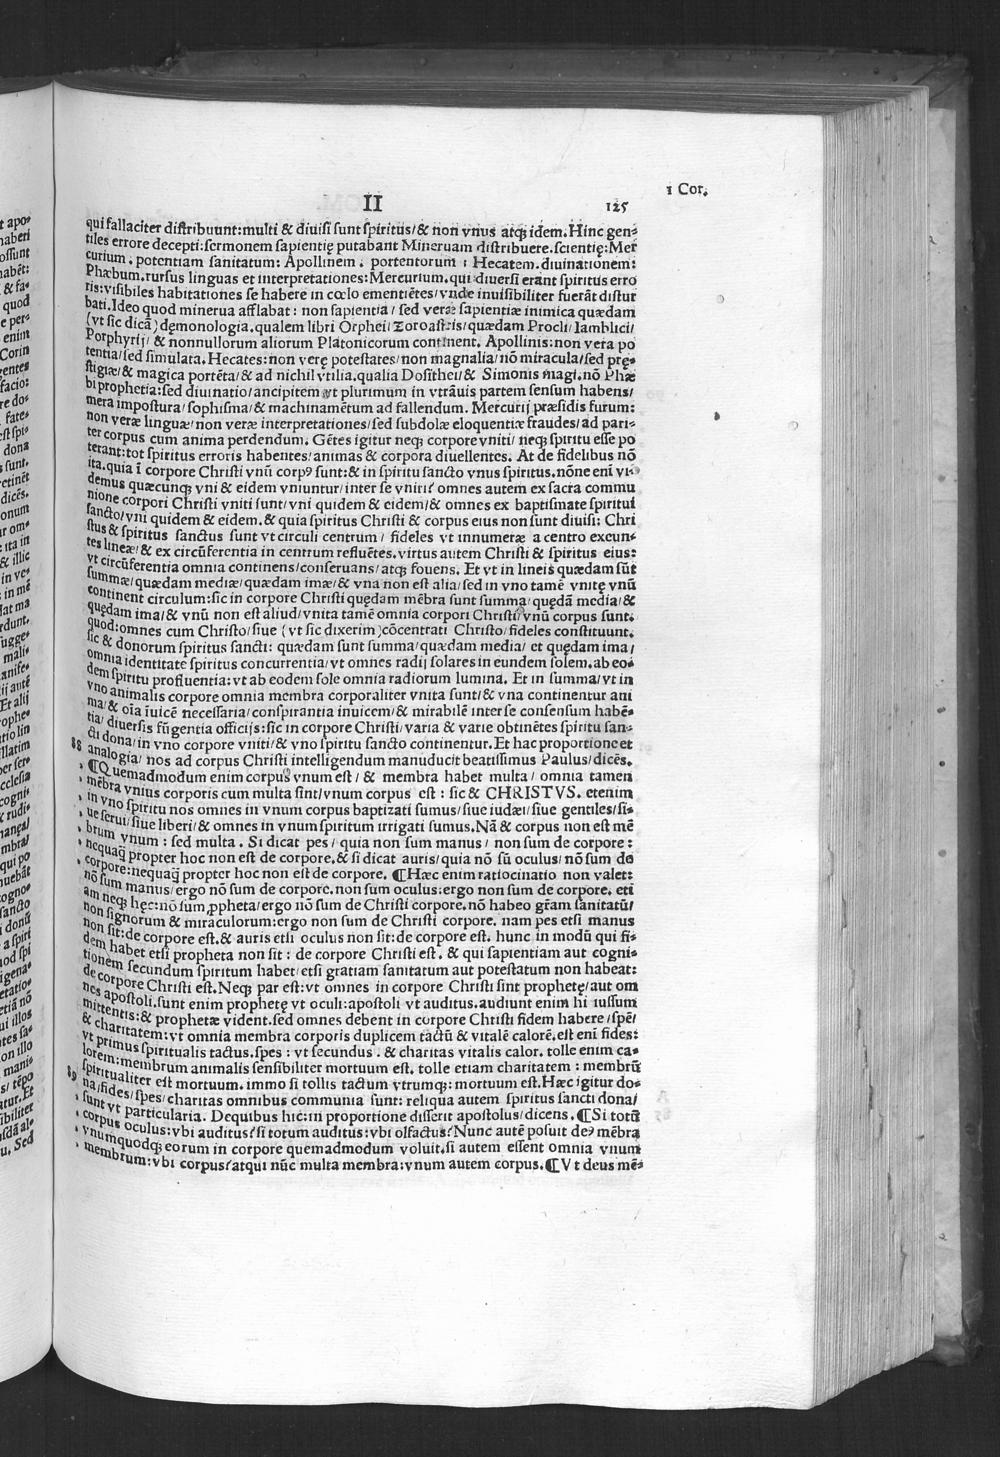 1 Cor.
II
125
qui fallaciter distribuunt: multi & diuisi sunt spiritus/ & non vnus atq₃ idem. Hinc gen⸗
tiles errore decepti: sermonem sapientię putabant Mineruam distribuere. scientię: Mer
curium. potentiam sanitatum: Apollinem. portentorum: Hecatem. diuinationem:
Phæbum. rursus linguas et interpretationes: Mercurium. qui diuersi erant spiritus erro
ris: visibiles habitationes se habere in cœlo ementiētes/ vnde inuisibiliter fuerāt distur
bati. Ideo quod minerua afflabat: non sapientia/ sed veræ sapientiæ inimica quædam
(vt sic dicā) dęmonologia. qualem libri Orphei/ Zoroastris/ quædam Procli/ Iamblici/
Porphyrij/ & nonnullorum aliorum Platonicorum continent. Apollinis: non vera po
tentia/ sed simulata. Hecates: non verę potestates/ non magnalia/ nō miracula/ sed pręs⸗
stigiæ/ & magica portēta/ & ad nichil vtilia. qualia Dosithei/ & Simonis magi. nō Phæ
bi prophetia: sed diuinatio/ ancipitem vt plurimum in vtrāuis partem sensum habens/
mera impostura/ sophisma/ & machinamētum ad fallendum. Mercurij præsidis furum:
non veræ linguæ/ non veræ interpretationes/ sed subdolæ eloquentiæ fraudes/ ad pari⸗
ter corpus cum anima perdendum. Gētes igitur neq₃ corpore vniti/ neq₃ spiritu esse po
terant: tot spiritus erroris habentes/ animas & corpora diuellentes. At de fidelibus nō
ita. quia ī corpore Christi vnū corpꝰ sunt: & in spiritu sancto vnus spiritus. nōne eni vi⸗
demus quæcunq₃ vni & eidem vniuntur/ inter se vniri? omnes autem ex sacra commu
nione corpori Christi vniti sunt/ vni quidem & eidem/ & omnes ex baptismate spiritui
sancto/ vni quidem & eidem. & quia spiritus Christi & corpus eius non sunt diuisi: Chri
stus & spiritus sanctus sunt vt circuli centrum/ fideles vt innumeræ a centro exeun⸗
tes lineæ/ & ex circūferentia in centrum refluētes. virtus autem Christi & spiritus eius:
vt circūferentia omnia continens/ conseruans/ atq₃ fouens. Et vt in lineis quædam sūt
summæ/ quædam mediæ/ quædam imæ/ & vna non est alia/ sed in vno tamē vnitę vnū
continent circulum: sic in corpore Christi quędam mēbra sunt summa/ quędā media/ &
quędam ima/ & vnū non est aliud/ vnita tamē omnia corpori Christi/ vnū corpus sunt.
quod: omnes cum Christo/ siue (vt sic dixerim) cōcentrati Christo/ fideles constituunt.
sic & donorum spiritus sancti: quædam sunt summa/ quædam media/ et quędam ima/
omnia identitate spiritus concurrentia/ vt omnes radij solares in eundem solem. ab eo⸗
dem spiritu profluentia: vt ab eodem sole omnia radiorum lumina. Et in summa/ vt in
vno animalis corpore omnia membra corporaliter vnita sunt/ & vna continentur ani
ma/ & oīa īuicē necessaria/ conspirantia inuicem/ & mirabilē inter se consensum habē⸗
tia/ diuersis fūgentia officijs: sic in corpore Christi/ varia & varie obtinētes spiritu san⸗
cti dona/ in vno corpore vniti/ & vno spiritu sancto continentur. Et hac proportione et
88 analogia/ nos ad corpus Christi intelligendum manuducit beatissimus Paulus/ dicēs.
, ¶Quemadmodum enim corpus vnum est/ & membra habet multa/ omnia tamen
, mēbra vnius corporis cum multa sint/ vnum corpus est: sic & CHRISTVS. etenim
, in vno spiritu nos omnes in vnum corpus baptizati sumus/ siue iudæi/ siue gentiles/ si⸗
, ue serui/ siue liberi/ & omnes in vnum spiritum irrigati sumus. Nā & corpus non est mē
, brum vnum: sed multa. Si dicat pes/ quia non sum manus/ non sum de corpore:
, nequaq̄ propter hoc non est de corpore. & si dicat auris/ quia nō sū oculus/ nō sum de
, corpore: nequaq̄ propter hoc non est de corpore. ¶Hæc enim ratiocinatio non valet:
nō sum manus/ ergo nō sum de corpore. non sum oculus: ergo non sum de corpore. eti
am neq₃ hęc: nō sum ꝓpheta/ ergo nō sum de Christi corpore. nō habeo grām sanitatū/
non signorum & miraculorum: ergo non sum de Christi corpore. nam pes etsi manus
non sit: de corpore est. & auris etsi oculus non sit: de corpore est. hunc in modū qui fi⸗
dem habet etsi propheta non sit: de corpore Christi est. & qui sapientiam aut cogni⸗
tionem secundum spiritum habet/ etsi gratiam sanitatum aut potestatum non habeat:
de corpore Christi est. Neq₃ par est: vt omnes in corpore Christi sint prophetę/ aut om
nes apostoli. sunt enim prophetę vt oculi: apostoli vt auditus. audiunt enim hi iussum
mittentis: & prophetæ vident. sed omnes debent in corpore Christi fidem habere/ spē/
& charitatem: vt omnia membra corporis duplicem tactū & vitalē calorē. est eni fides:
vt primus spiritualis tactus. spes: vt secundus. & charitas vitalis calor. tolle enim ca⸗
lorem: membrum animalis sensibiliter mortuum est. tolle etiam charitatem: membrū
spiritualiter est mortuum. immo si tollis tactum vtrumq₃: mortuum est. Hæc igitur do⸗
89 na/ fides/ spes/ charitas omnibus communia sunt: reliqua autem spiritus sancti dona/
, sunt vt particularia. De quibus hic: in proportione disserit apostolus/ dicens. ¶Si totū
, corpus oculus: vbi auditus? si totum auditus: vbi olfactus? Nunc autē posuit deꝰ mēbra
, vnumquodq₃ eorum in corpore quemadmodum voluit. si autem essent omnia vnum
, membrum: vbi corpus? atqui nūc multa membra: vnum autem corpus. ¶Vt deus mē⸗